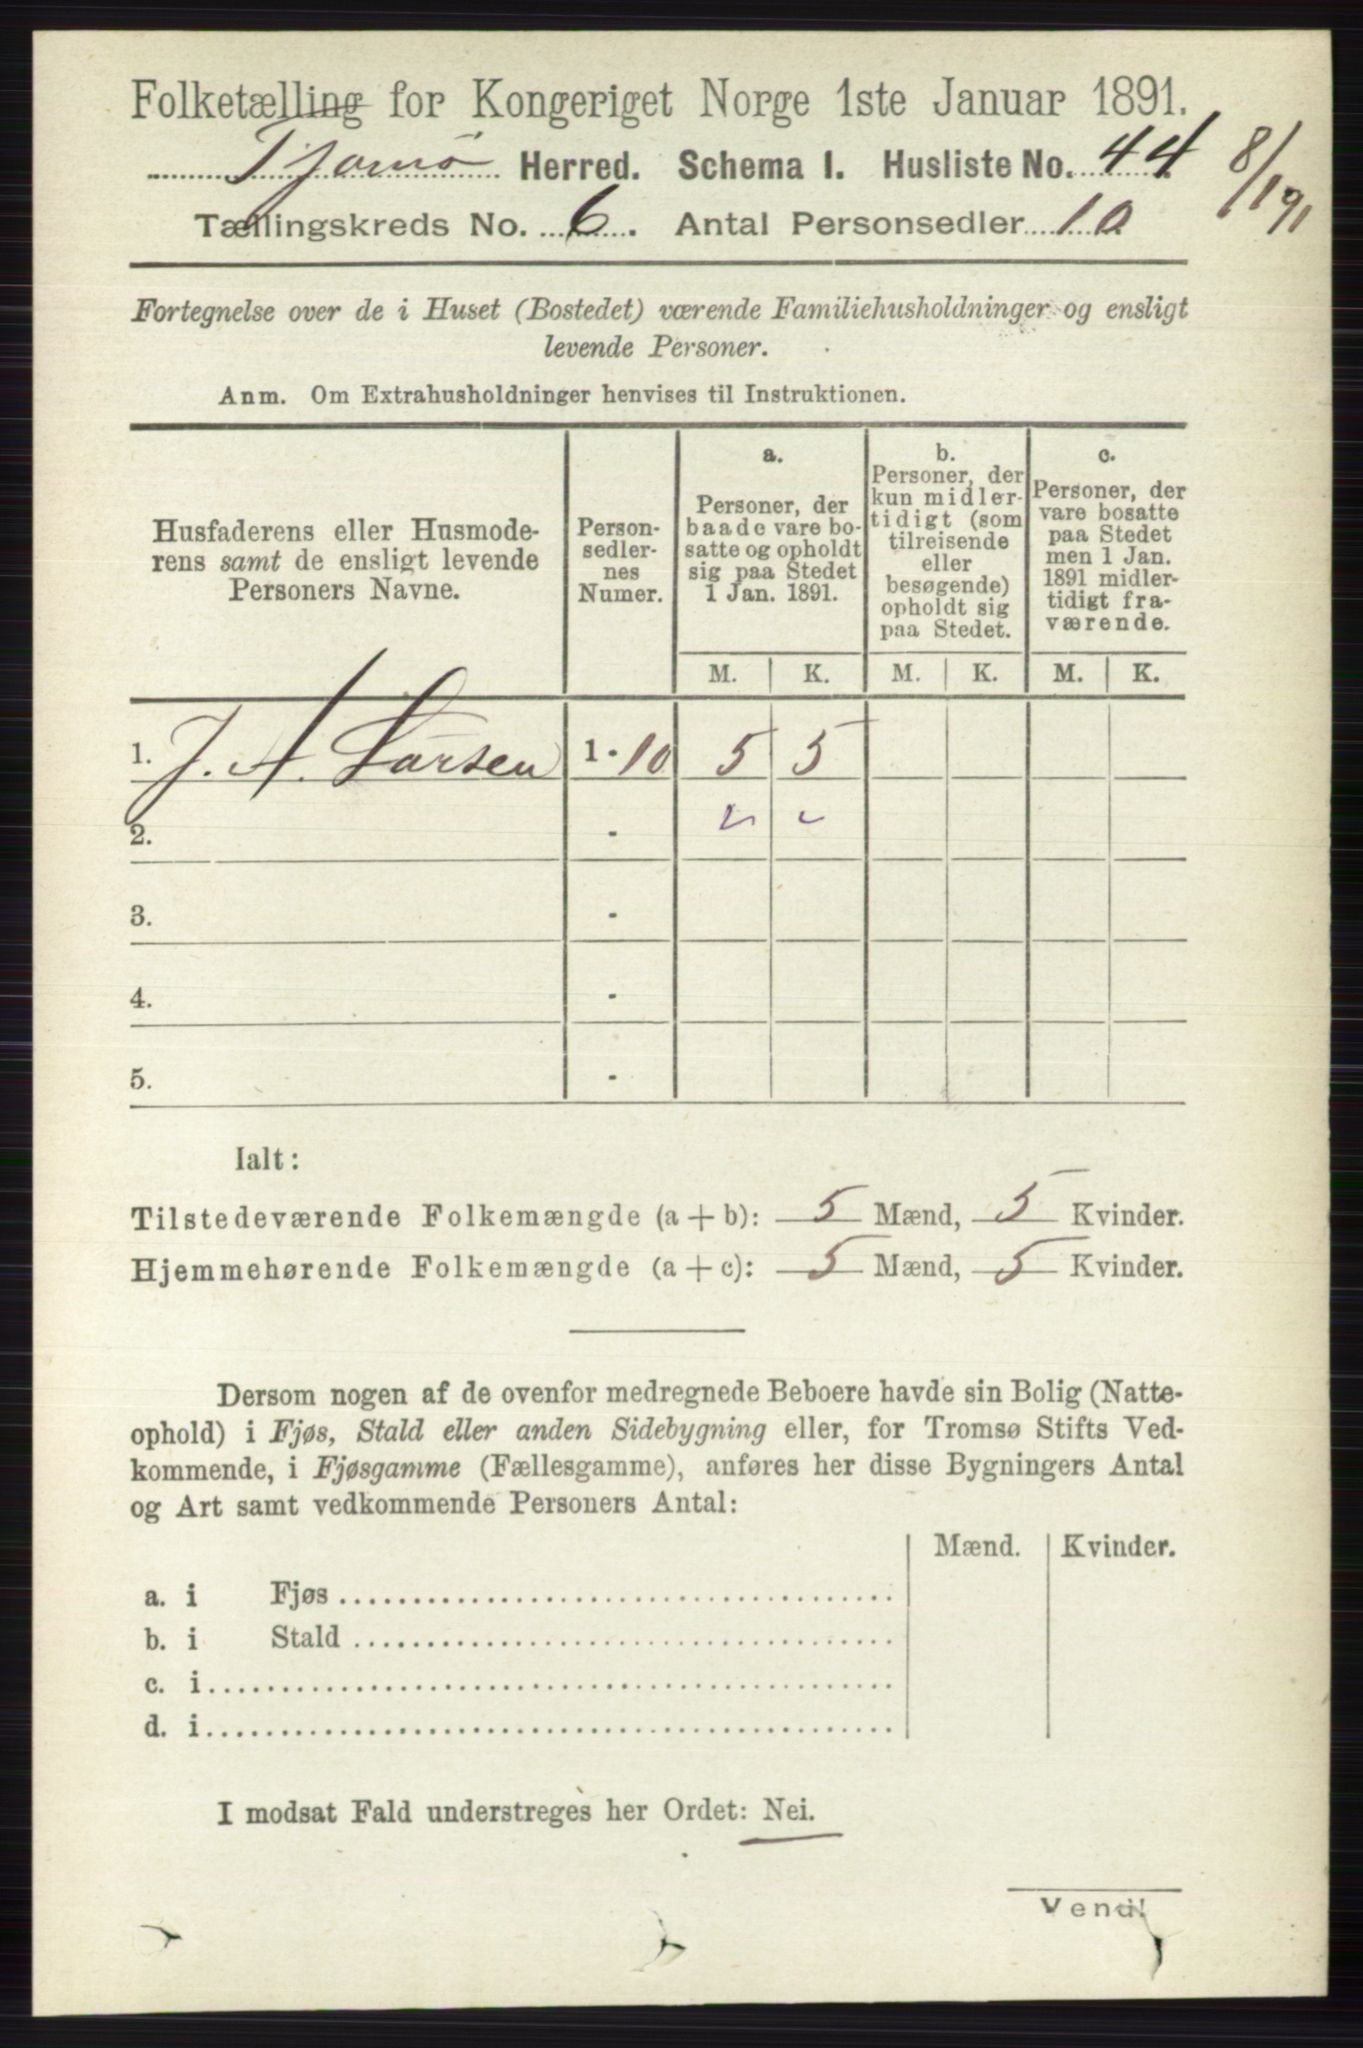 Folketælling for Kongeriget Norge 1ste Januar 1891.
Tjømø Herred. Schema I. Husliste No. 44 8/1 91
Tællingskreds No. 6. Antal Personsedler 10
Fortegnelse over de i Huset (Bostedet) værende Familiehusholdninger og ensligt
levende Personer.
Anm. Om Extrahusholdninger henvises til Instruktionen.
Husfaderens eller Husmode-
rens samt de ensligt levende
Personers Navne.
Person-
sedler-
nes
Numer.
a.
Personer, der
baade vare bo-
satte og opholdt
sig paa Stedet
1 Jan. 1891.
b.
Personer, der
kun midler-
tidigt (som
tilreisende
eller
besøgende)
opholdt sig
paa Stedet.
c.
Personer, der
vare bosatte
paa Stedet
men 1 Jan.
1891 midler-
tidigt fra-
værende.
M. K. M. K. M. K.
1. J. A. Larsen 1 - 10 5 5
2. -
3. -
4. -
5. -
Ialt:
Tilstedeværende Folkemængde (a + b): 5 Mænd, 5 Kvinder.
Hjemmehørende Folkemængde (a + c): 5 Mænd, 5 Kvinder.
Dersom nogen af de ovenfor medregnede Beboere havde sin Bolig (Natte-
ophold) i Fjøs, Stald eller anden Sidebygning eller, for Tromsø Stifts Ved-
kommende, i Fjøsgamme (Fællesgamme), anføres her disse Bygningers Antal
og Art samt vedkommende Personers Antal:
Mænd. Kvinder.
a. i Fjøs
b. i Stald
c. i
d. i
I modsat Fald understreges her Ordet: Nei.
Vend!